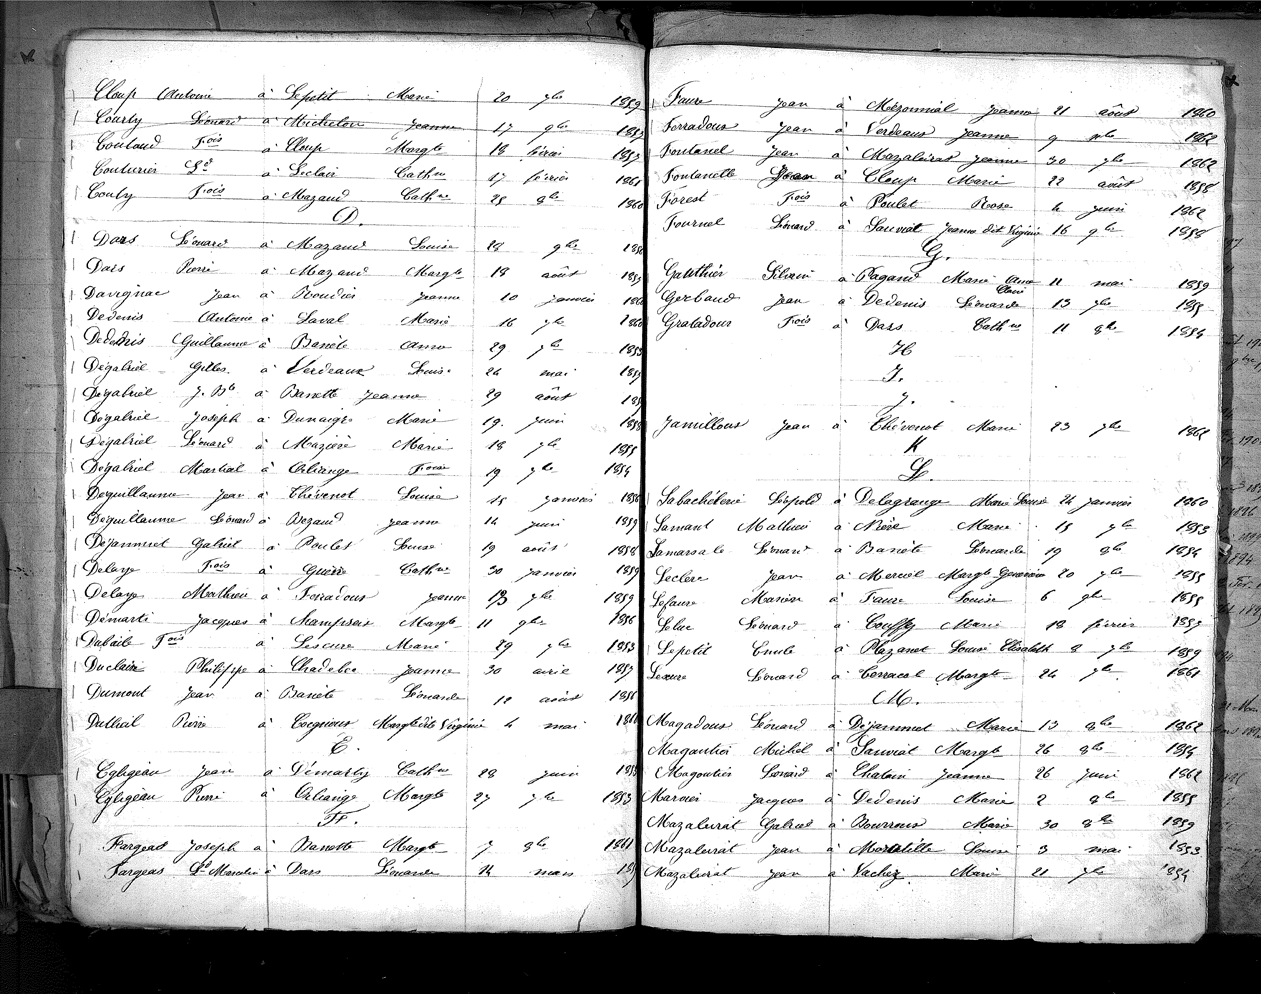 Cloup Antoine à Lepetit Marie 20 7bre 1859
Courly Léonard à Micheton Jeanne 17 9bre 1857
Coutaud Fois à Cloup Margte 18 février 1857
Couturier Ld à Leclair Cathne 17 février 1861
Couty Fois à Mazaud Cathne 25 8bre 1860
D.
Dars Léonard à Mazaud Louise 28 9bre
Dars Pierre à Mazaud Margte 18 août
Davignac Jean à Boudier Jeanne 10 janvier
Dedenis Antoine à Laval Marie 16 7bre 1860
Dedenis Guillaume à Banète Anne 29 7bre 1853
Dégabriel Gilles à Verdeaux Louise 24 mai
Dégabriel J. Bte à Banette Jeanne 29 août
Dégabriel Joseph à Dunaigre Marie 19 juin 1858
Dégabriel Léonard à Mazière Marie 18 7bre 1855
Dégabriel Martial à Orliange Foise 19 7bre 1854
Deguillaume Jean à Thévenot Louise 15 janvier
Deguillaume Léonard à Bezaud Jeanne 14 juin 1859
Déjammet Gabriel à Poulet Louise 19 août 1858
Delaye Fois à Guérie Cathne 30 janvier 1859
Delaye Mathieu à Ferradoux Jeanne 13 7bre 1859
Démarti Jacques à Mampseix Margte 11 9bre 1856
Dubaile Fois à Lescure Marie 29 7bre 1853
Duclair Philippe à Chadebec Jeanne 30 avril 1857
Dumont Jean à Banète Léonarde 12 août
Dutheil Pierre à Cocgnioux Margte dite Virginie 4 mai
E.
Egligeau Jean à Démarty Cathne 28 juin
Egligeau Pierre à Orliange Margte 27 7bre 1853
F.
Fargeas Joseph à Banette Margte 7 8bre 1861
Fargeas Ld Marcelin à Dars Léonarde 14 mars
Faure Jean à Mézonnial Jeanne 21 août 1860
Ferradoux Jean à Verdeaux Jeanne 9 1862
Fontanel Jean à Mazaleirat Jeanne 30 7bre 1862
Fontanelle Jean à Cloup Marie 22 août 1858
Forest Fois à Poulet Rose 4 juin 1862
Fournel Léonard à Sauviat Jeanne dit Virginie 16 9bre 1858
G.
Gauthier Silvain à Pagand Marie Anne Claire 11 mai 1859
Gerbaud Jean à Dedenis Léonarde 13 7bre 1855
Gratadoux Fois à Dars Cathne 11 8bre 1854
H
I.
J.
Jamilloux Jean à Thévenot Marie 23 7bre 1862
K
L.
Labachélerie Léopold à Delagrange Marie Louise 24 janvier 1860
Lamant Mathieu à Nière Marie 15 7bre 1853
Lamarsale Léonard à Banète Léonarde 19 8bre 1854
Leclere Jean à Merciel Margte Geneviève 20 7bre 1855
Lefaure Marien à Faure Louise 6 9bre 1855
Leluc Léonard à Couffy Marie 18 février 1857
Lepetit Emile à Plazanet Louise Elisabeth 8 7bre 1859
Lescure Léonard à Terracol Margte 24 7bre 1861
M.
Magadoux Léonard à Déjammet Marie 13 8bre 1862
Magoutier Michel à Sauviat Margte 26 8bre 1854
Magoutier Léonard à Chatain Jeanne 26 juin 1862
Marouei Jacques à Dedenis Marie 2 8bre 1855
Mazaleirat Gabriel à Bourroux Marie 30 8bre 1859
Mazaleirat Jean à Moratille Louise 3 mai 1853
Mazaleirat Jean à Vachez Marie 21 7bre 1854